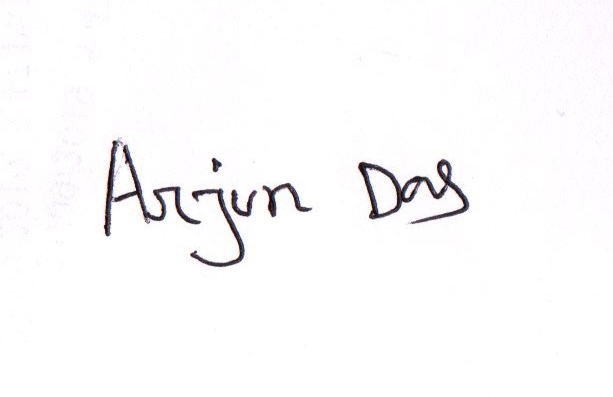 Arjun Das